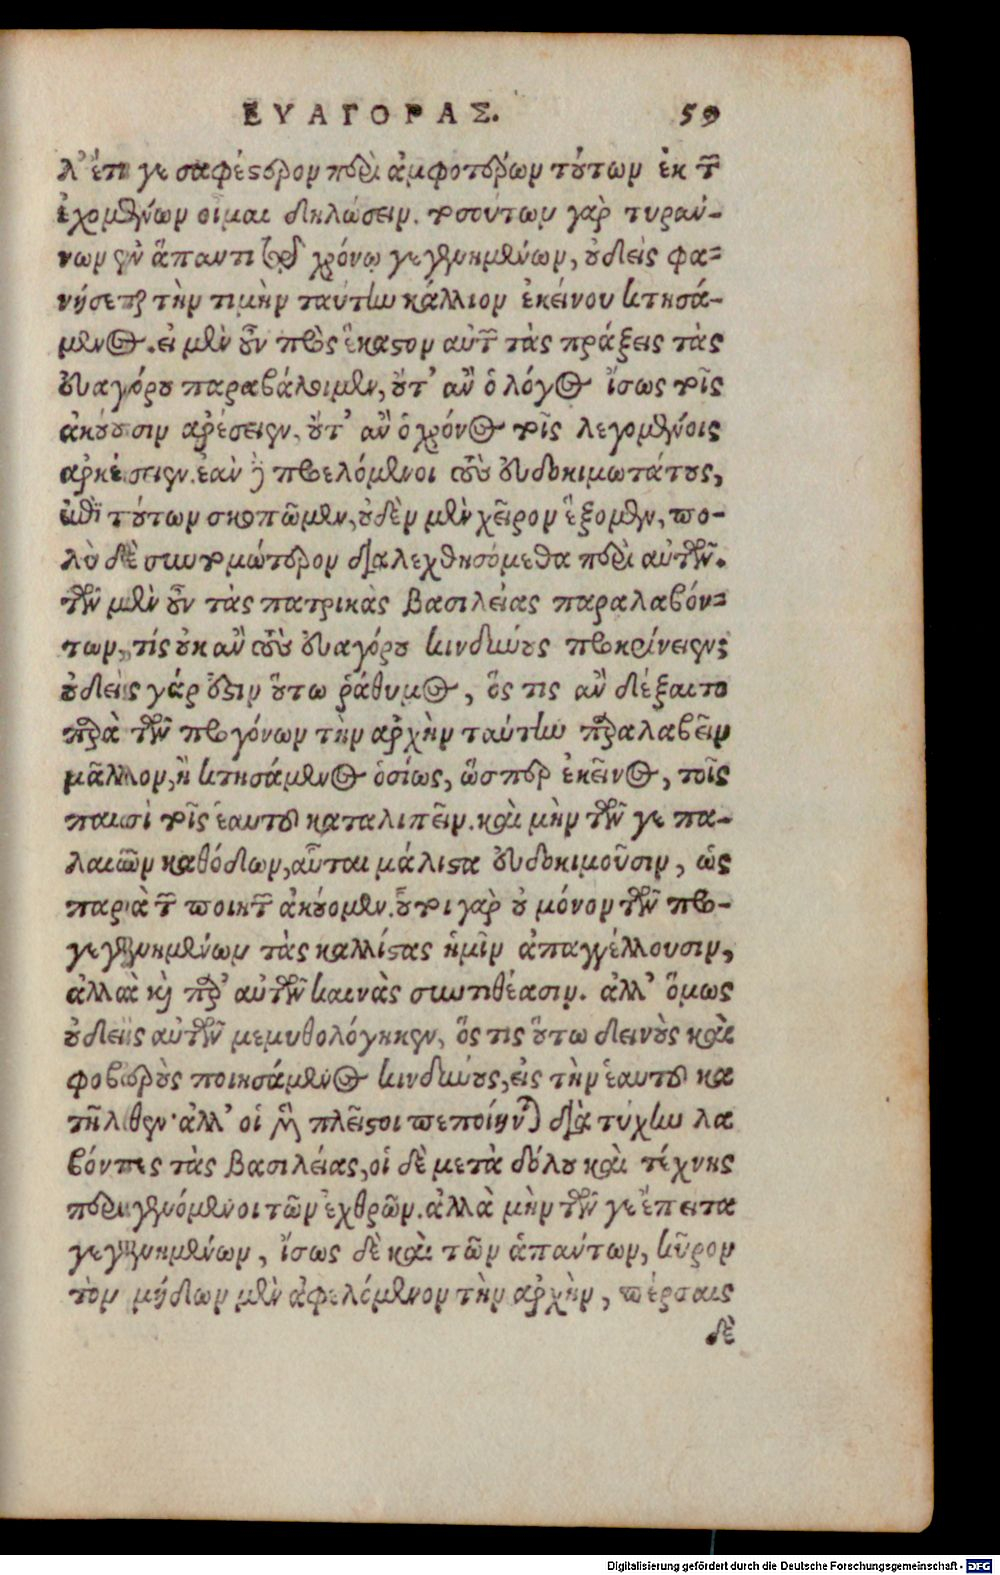 ΕΥΑΓΟΡΑΣ. 59
λ' ἔτι γε σαφέστερον περὶ ἀμφοτέρων τούτων ἐκ τῶν
ἐχομένων οἶμαι δηλώσειν. τοσούτων γὰρ τυράν-
νων ἐν ἅπαντι τῷ χρόνῳ γεγενημένων, οὐδεὶς φα-
νήσεται τὴν τιμὴν ταύτην κάλλιον ἐκείνου κτησά-
μενος. εἰ μὲν οὖν πρὸς ἕκαστον αὐτῶν τὰς πράξεις τὰς
εὐαγόρου παραβάλοιμεν, οὔτ' ἂν ὁ λόγος ἴσως τοῖς
ἀκούουσιν ἀρέσειεν, οὔτ' ἂν ὁ χρόνος τοῖς λεγομένοις
ἀρκέσειεν. ἐὰν δὲ προελόμενοι τοὺς εὐδοκιμωτάτους,
ἐπὶ τούτων σκοπῶμεν, οὐδὲν μὲν χεῖρον ἕξομεν, πο-
λὺ δὲ συντομώτερον διαλεχθησόμεθα περὶ αὐτῶν.
τῶν μὲν οὖν τὰς πατρικὰς βασιλείας παραλαβόν-
των, τίς οὐκ ἂν τοὺς εὐαγόρου κινδύνους προκρίνειεν;
οὐδεὶς γάρ ἐστιν οὕτω ῥάθυμος, ὅς τις ἂν δέξαιτο
παρὰ τῶν προγόνων τὴν ἀρχὴν ταύτην παραλαβεῖν
μᾶλλον, ἢ κτησάμενος ὁσίως, ὥσπερ ἐκεῖνος, τοῖς
παισὶ τοῖς ἑαυτοῦ καταλιπεῖν. καὶ μὴν τῶν γε πα-
λαιῶν καθόδων, αὗται μάλιστα εὐδοκιμοῦσιν, ὡς
παρὰ τῶν ποιητῶν ἀκούομεν. οὗτοι γὰρ οὐ μόνον τῶν προ-
γεγενημένων τὰς καλλίστας ἡμῖν ἀπαγγέλλουσιν,
ἀλλὰ καὶ παρ' αὐτῶν καινὰς συντιθέασιν. ἀλλ' ὅμως
οὐδεὶς αὐτῶν μεμυθολόγηκεν, ὅς τις οὕτω δεινοὺς καὶ
φοβεροὺς ποιησάμενος κινδύνους, εἰς τὴν ἑαυτοῦ κα
τῆλθεν· ἀλλ' οἱ μὲν πλεῖστοι πεποίηνται διὰ τύχην λα
βόντες τὰς βασιλείας, οἱ δὲ μετὰ δόλου καὶ τέχνης
περιγενόμενοι τῶν ἐχθρῶν. ἀλλὰ μὴν τῶν γε ἔπειτα
γεγενημένων, ἴσως δὲ καὶ τῶν ἁπάντων, κῦρον
τὸν μήδων μὲν ἀφελόμενον τὴν ἀρχὴν, πέρσαις
δὲ
Digitalisierung gefördert durch die Deutsche Forschungsgemeinschaft - DFG